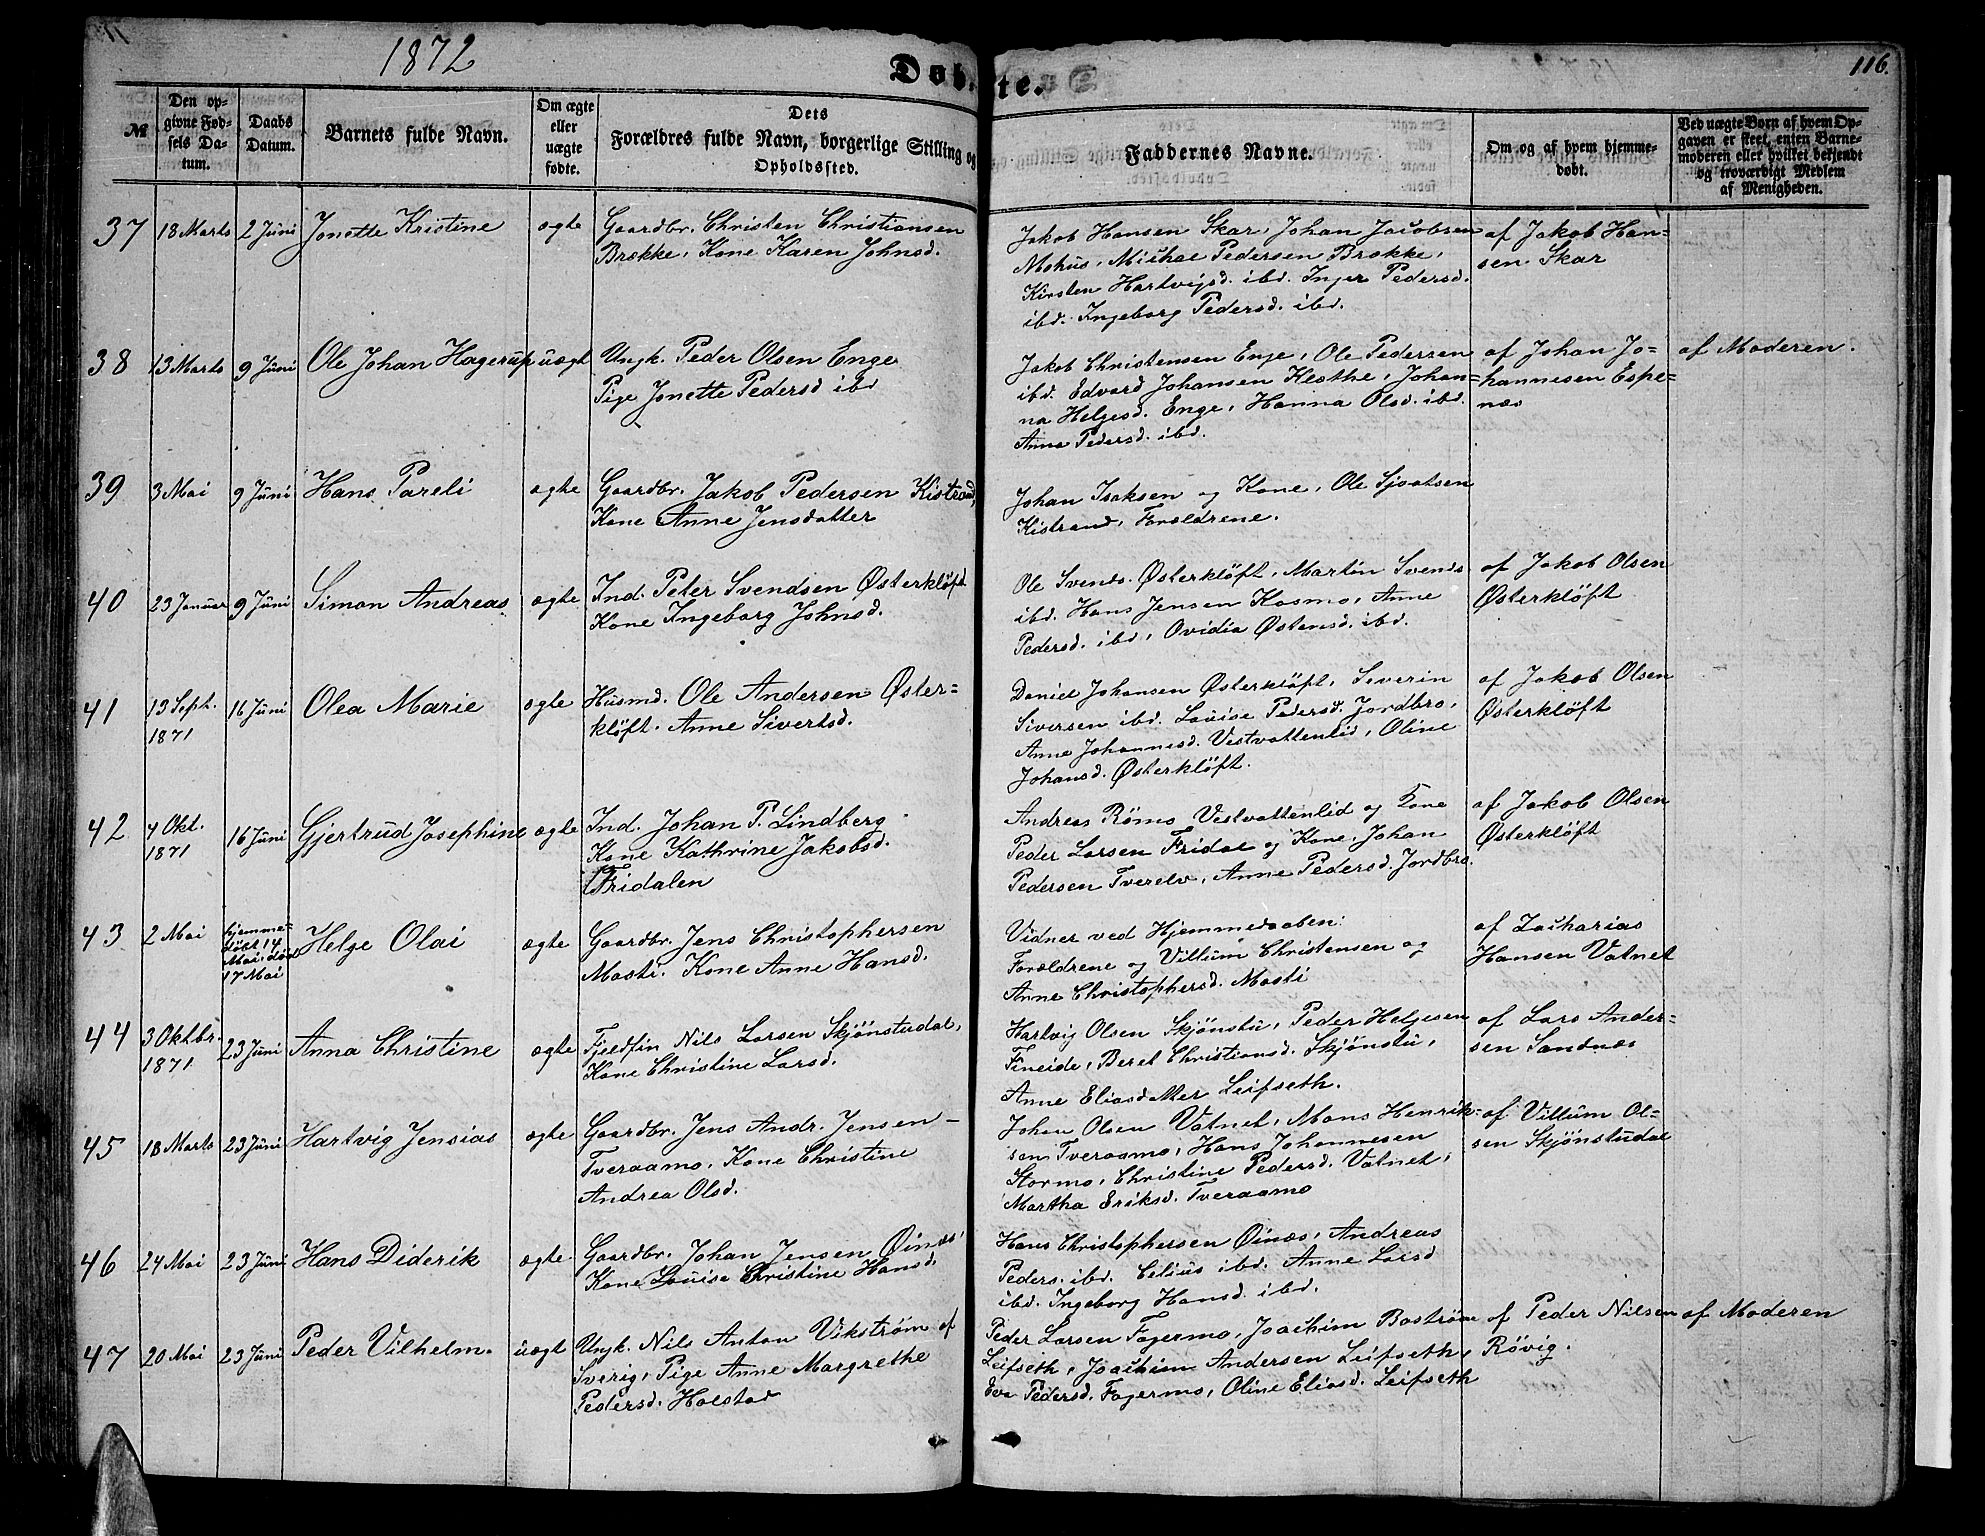 1872
Døbte.
116.
№
Den op-
givne Fød-
sels Da-
tum.
Daabs
Datum.
Barnets fulde Navn.
Om ægte
eller
uægte
fødte.
Dets
Forældres fulde Navn, borgerlige Stilling og
Opholdssted.
Faddernes Navne.
Om og af hvem hjemme-
døbt.
Ved uægte Børn af hvem Op-
gaven er skeet, enten Barne-
moderen eller hvilket bekjendt
og troværdigt Medlem
af Menigheden.
37
18 Marts
2 Juni
Jonette Kristine
ægte
Gaardbr. Christen Christiansen
Brække, Kone Karen Johnsd.
Jakob Hansen Skar, Johan Jacobsen
Mohus, Michal Pedersen Brække,
Kirsten Hartvigsd. ibd. Inger Pedersd.
ibd. Ingeborg Pedersd. ibd.
af Jakob Han-
sen Skar
38
13 Marts
9 Juni
Ole Johan Hagerup
uægt
Ungk. Peder Olsen Enge
Pige Jonette Pedersd ibd
Jakob Christensen Enge, Ole Pedersen
ibd. Edvard Johansen Kleothe, Johan-
na Helgesd. Enge, Hanna Olsd. ibd.
Anna Pedersd. ibd.
af Johan Jo-
hannesen Espe-
næs
af Moderen.
39
3 Mai
9 Juni
Hans Pareli
ægte
Gaardbr. Jakob Pedersen Kistrand,
Kone Anne Jensdatter
Johan Isaksen og Kone, Ole Sjvatsen
Kistrand, Forældrene.
40
23 Januar
9 Juni
Simon Andreas
ægte
Ind. Peter Svendsen Østerkløft
Kone Ingeborg Johnsd.
Ole Svends. Østerkløft, Martin Svends
ibd. Hans Jensen Kosmo, Anne
Pedersd. ibd, Ovidia Østensd. ibd.
af Jakob Olsen
Østerkløft
41
13 Sept.
1871
16 Juni
Olea Marie
ægte
Husmd. Ole Andersen Øster-
kløft. Anne Sivertsd.
Daniel Johansen Østerkløft, Severin
Siversen ibd. Louise Pedersd. Jordbro,
Anne Johannesd. Vestvattenlid, Oline
Johansd. Østerkløft.
af Jakob Olsen
Østerkløft
42
4 Okt.
1871
16 Juni
Gjertrud Josephine
ægte
Ind. Johan P. Lindberg
Kone Kathrine Jakobsd.
Fridalen
Andreas Rømo Vestvattenlid og Kone
Peder Larsen Fridal og Kone, Johan
Pedersen Tverelv, Anne Pedersd. Jordbro.
af Jakob Olsen
Østerkløft
43
2 Mai
hjemme-
døbt 14
Mai død
17 Mai
Helge Olai
ægte
Gaardbr. Jens Christophersen
Mosti. Kone Anne Hansd.
Vidner ved Hjemmedaaben:
Forældrene og Villum Christensen og
Anne Christophersd. Mosti
af Zacharias
Hansen Vatnet
44
3 Oktbr.
1871
23 Juni
Anna Christine
ægte
Fjeldfin Nils Larsen Skjønstudal,
Kone Christine Larsd.
Hartvig Olsen Skjønstu, Peder Helgesen
Fineide, Beret Christiansd. Skjønstu,
Anne Eliasdatter Leifseth.
af Lars Ander-
sen Sandnæs
45
18 Marts
23 Juni
Hartvig Jensias
ægte
Gaardbr. Jens Andr. Jensen -
Tveraamo, Kone Christine
Andrea Olsd.
Johan Olsen Vatnet, Mons Henrik-
sen Tveraamo, Hans Johannesen
Stormo, Christine Pedersd. Vatnet,
Martha Eriksd. Tveraamo
af Villum Ol-
sen Skjønstudal
46
24 Mai
23 Juni
Hans Diderik
ægte
Gaardbr. Johan Jensen Øinæs,
Kone Louise Christine Hansd.
Hans Christophersen Øinæs, Andreas
Peders. ibd. Celius ibd. Anne Larsd
ibd. Ingeborg Hansd. ibd.
47
20 Mai
23 Juni
Peder Vilhelm.
uægt
Ungk. Nils Anton Vikstrøm af
Sverig, Pige Anne Margrethe
Pedersd. Holstad
Peder Larsen Fagermo, Joachim Bostrøm
Leifseth, Joachim Andersen Leifseth,
Eva Pedersd. Fagermo, Oline Eliasd. Leifseth
af Peder Nilsen
Røvig.
af Moderen